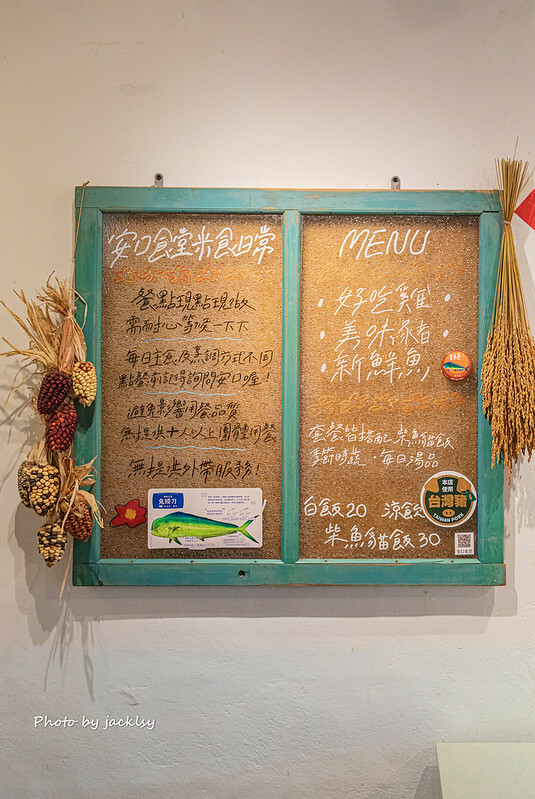 安口食堂米食日常
餐點現點現做
需耐心等候一下下
每日主食及烹調方式不同
點餐前記得詢問安口喔！
避免影響用餐品質
無提供十人以上團體用餐
無提供外帶服務！
鬼頭刀
MENU
·好吃雞·
·美味豬·
·新鮮魚·
套餐皆搭配柴魚貓飯
季節時蔬·每日湯品
白飯20 涼飲
柴魚貓飯30
本店
使用
台灣豬
TAIWAN PORK
安口食堂
Photo by jacklsy